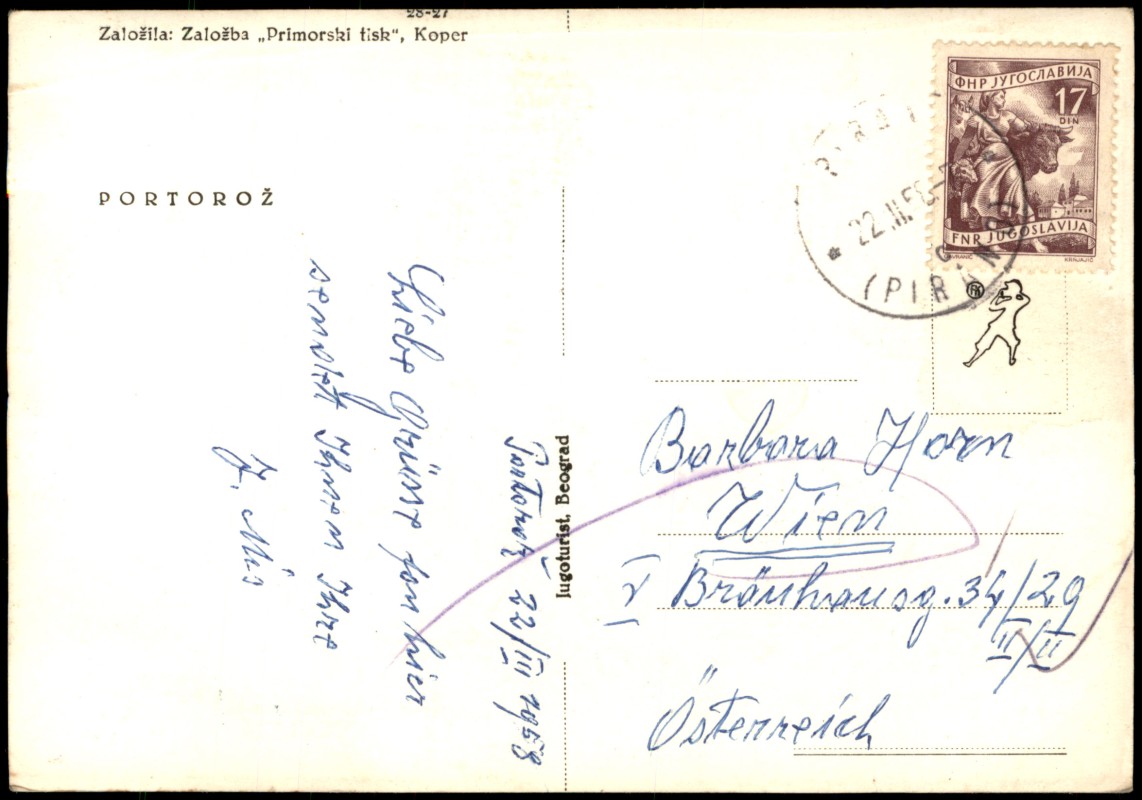 28-27
Založila: Založba „Primorski tisk“, Koper
PORTOROŽ
Portorož 22/III 1958
Liebe Grüsse fon hier
sendet Ihnen Ihre
Jugoturist, Beograd
ФНР ЈУГОСЛАВИЈА
17
DIN
FNR JUGOSLAVIJA
KRNJAJIĆ
22.III.58
(PIRANO)
Barbara Horn
Wien
V Bräuhausg. 34/29
II/II
Österreich